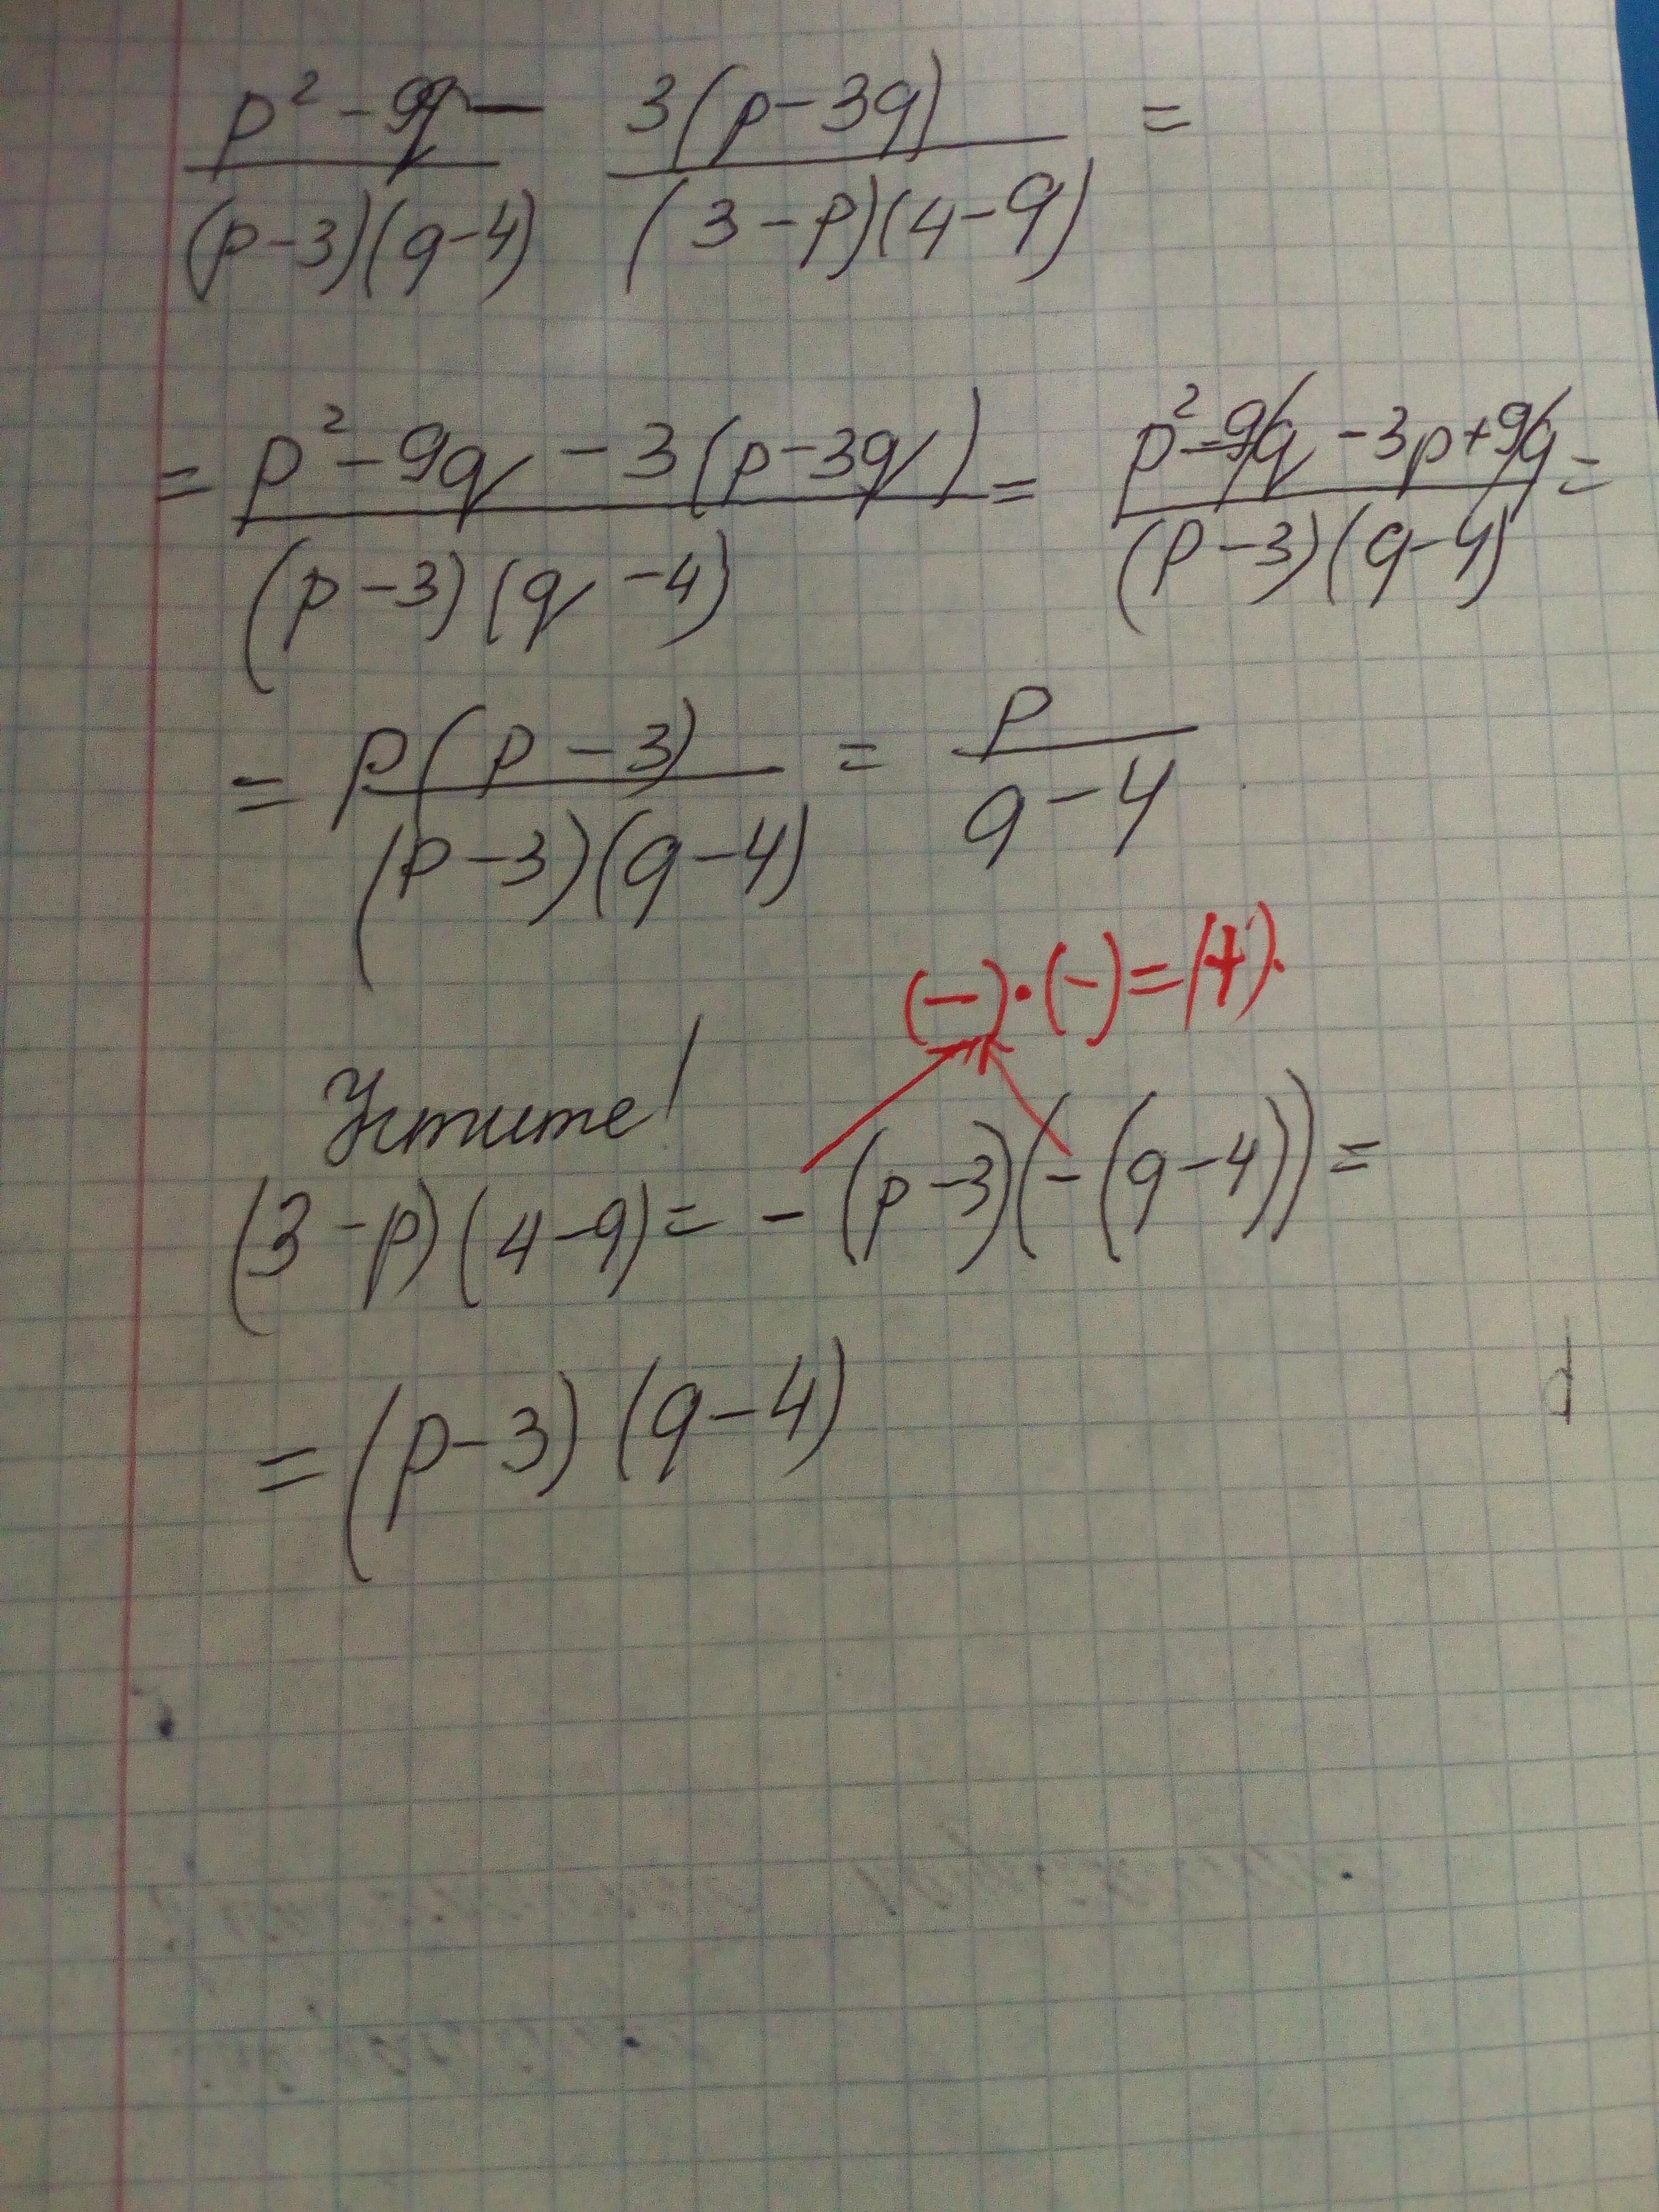 p² - 9q — 3(p-3q) =
(p-3)(q-4) (3-p)(4-q)
= p² - 9q - 3(p-3q) = p² - 9q - 3p + 9q =
(p-3)(q-4) (p-3)(q-4)
= p(p-3) = p
(p-3)(q-4) q-4
(-)·(-)=(+).
Учтите!
(3-p)(4-q) = -(p-3)(-(q-4)) =
= (p-3)(q-4)